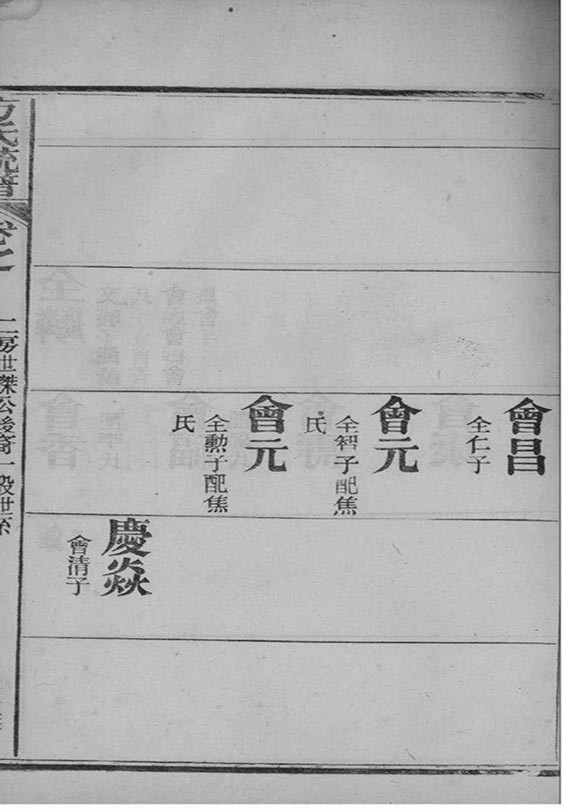 會昌
全仁子
會元
全智子配焦
氏
會元
全勲子配焦
氏
慶焱
會清子
方氏統譜
卷之
二房世傑公後裔一設世系